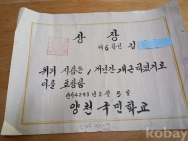 상장
제6학년 김
위의 사람은 1개년간 개근하였기로
이를 표창함
단기4293년 3월 5일
양천국민학교
kobay